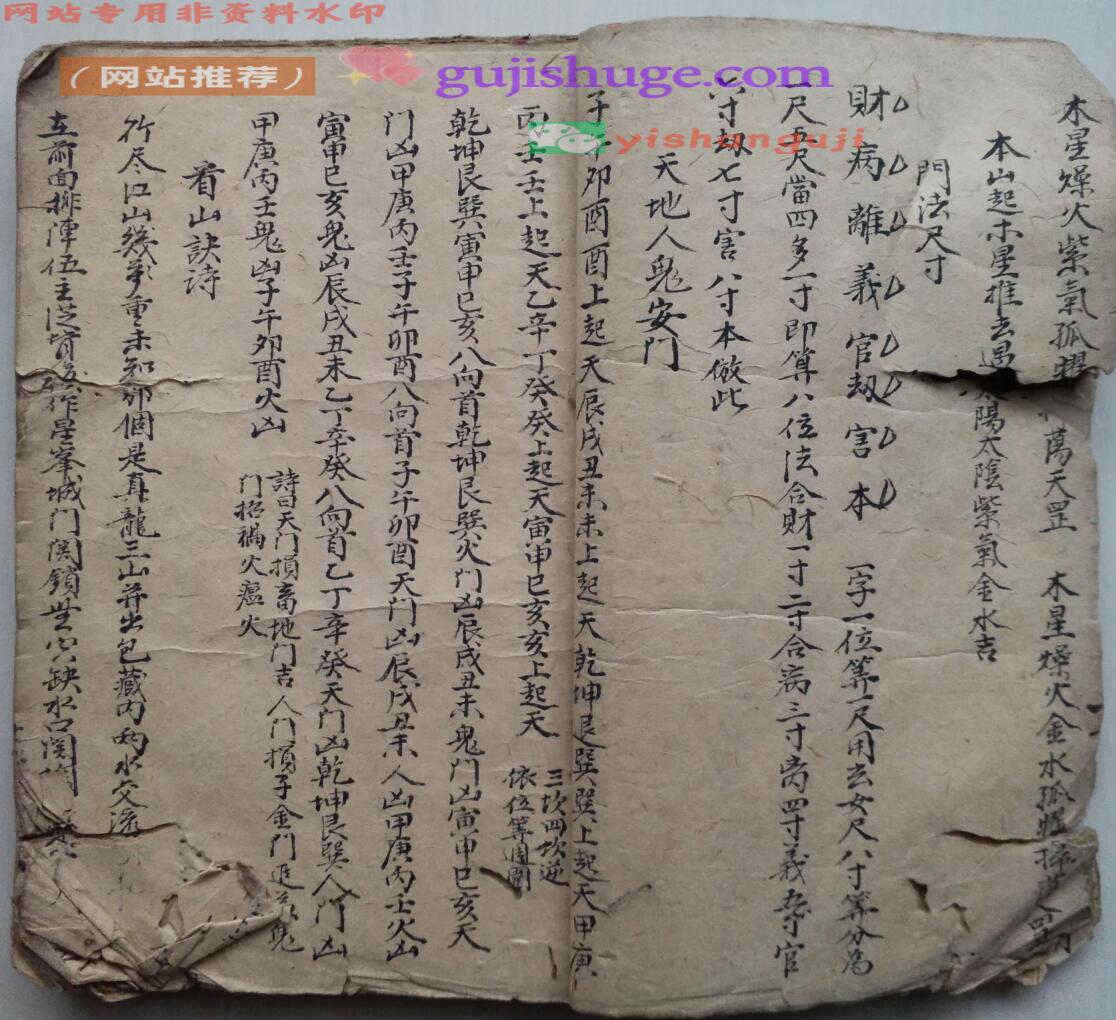 网站专用非资料水印
（网站推荐）
gujishuge.com
yishanguji
木星燥火紫氣孤曜 天罡 木星燥火金水孤曜掃
本山起木星推去遇太陽太陰紫氣金水吉
門法尺寸
財病離義官劫害本 一字一位筭一尺用玄女尺八寸筭分為
一尺五尺當四多一寸即算八位法合財一寸二寸合病三寸离四寸義五寸官
六寸劫七寸害八寸本倣此
天地人鬼安门
子午卯酉酉上起天辰戌丑未未上起天乾坤艮巽巽上起天甲庚
丙壬壬上起天乙辛丁癸癸上起天寅申巳亥亥上起天 三坎四坎逆
依位筭週閙
乾坤艮巽寅申巳亥八向首乾坤艮巽火门凶辰戌丑未鬼门凶寅申巳亥天
门凶甲庚丙壬子午卯酉八向首子午卯酉天门凶辰戌丑未人凶甲庚丙壬火凶
寅申巳亥鬼凶辰戌丑未乙丁辛癸八向首乙丁辛癸天门凶乾坤艮巽人门凶
甲庚丙壬鬼凶子午卯酉火凶 詩曰天门損畜地门吉人门損子金门進 鬼
门招禍火瘟火
看山訣诗
行尽江山幾萬重未知那個是真龍三山并出包藏内兩水交流
左前面排陣伍主 后作星峯城门関鎖無穴缺水口関